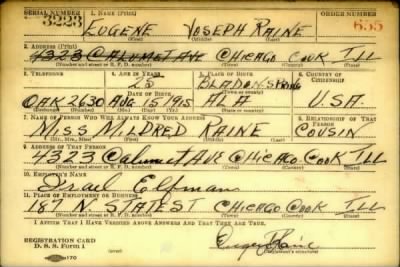 SERIAL NUMBER 1. NAME (Print) ORDER NUMBER
3223 EUGENE JOSEPH RAINE 655
(First) (Middle) (Last)
2. ADDRESS (Print)
4323 CALUMET AVE CHICAGO COOK ILL
(Number and street or R. F. D. number) (Town) (County) (State)
3. TELEPHONE 4. AGE IN YEARS 5. PLACE OF BIRTH 6. COUNTRY OF CITIZENSHIP
25 BLADON SPRING
DATE OF BIRTH (Town or county)
OAK 2630 AUG 15 1915 ALA U.S.A.
(Exchange) (Number) (Mo.) (Day) (Yr.) (State or country)
7. NAME OF PERSON WHO WILL ALWAYS KNOW YOUR ADDRESS 8. RELATIONSHIP OF THAT PERSON
MISS MILDRED RAINE COUSIN
(Mr., Mrs., Miss) (First) (Middle) (Last)
9. ADDRESS OF THAT PERSON
4323 Calumet AVE CHICAGO COOK ILL
(Number and street or R. F. D. number) (Town) (County) (State)
10. EMPLOYER'S NAME
Israel Elfman
11. PLACE OF EMPLOYMENT OR BUSINESS
187 N. STATE ST CHICAGO COOK ILL
(Number and street or R. F. D. number) (Town) (County) (State)
I AFFIRM THAT I HAVE VERIFIED ABOVE ANSWERS AND THAT THEY ARE TRUE.
REGISTRATION CARD Eugene Raine
D. S. S. Form 1 (Registrant's signature)